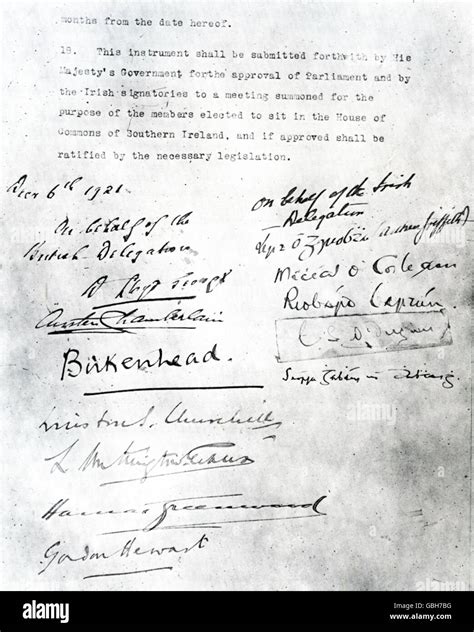 months from the date hereof.
18. This instrument shall be submitted forthwith by His
Majesty's Government forthe approval of Parliament and by
the Irish signatories to a meeting summoned for the
purpose of the members elected to sit in the House of
Commons of Southern Ireland, and if approved shall be
ratified by the necessary legislation.
Decr 6th 1921
On behalf of the
British Delegation
D Lloyd George
Austen Chamberlain
Birkenhead.
Winston S. Churchill
L Worthington-Evans
Hamar Greenwood
Gordon Hewart
On behalf of the Irish
Delegation
Art Ó Gríobhtha (Arthur Griffith)
Mícheál Ó Coileain
Riobárd Bartún
alamy
alamy
alamy
Image ID: GBH7BG
www.alamy.com